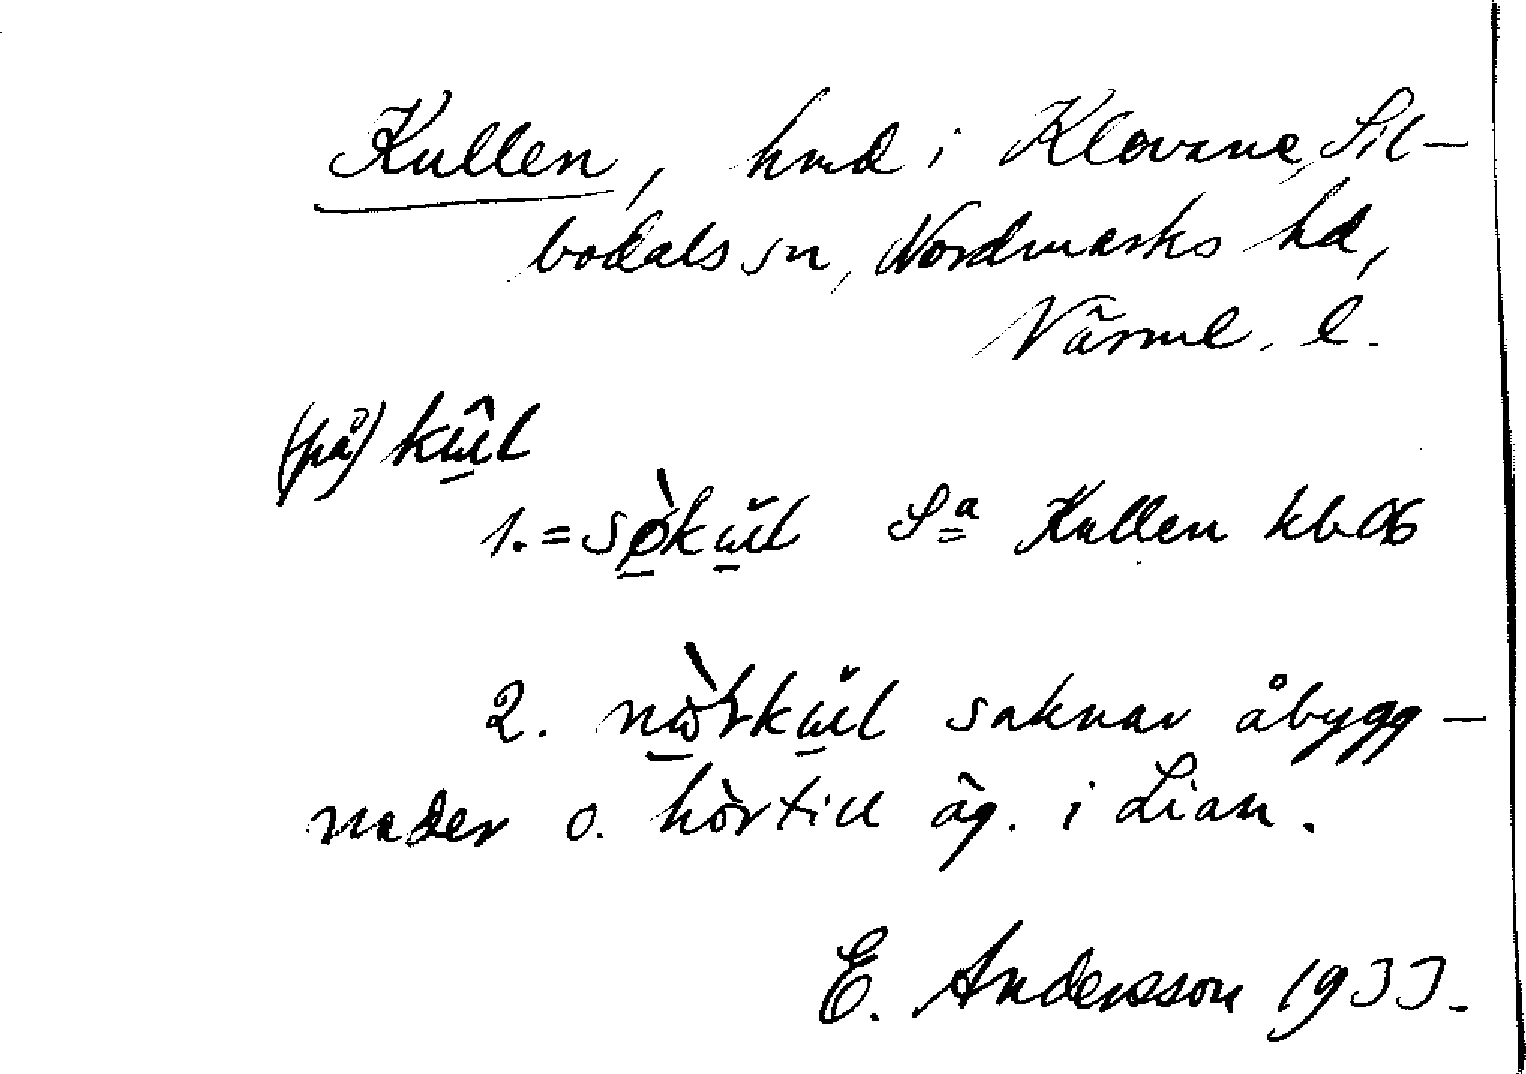 Kullen, hmd i Klovane, Sil-
bodals sn, Nordmarks hd,
Värml. l.
(på) kul
1. = søkul Sa Kullen kb 06
2. norkul saknar åbygg-
nader o. hör till äg. i Lian.
E. Andersson 1933.